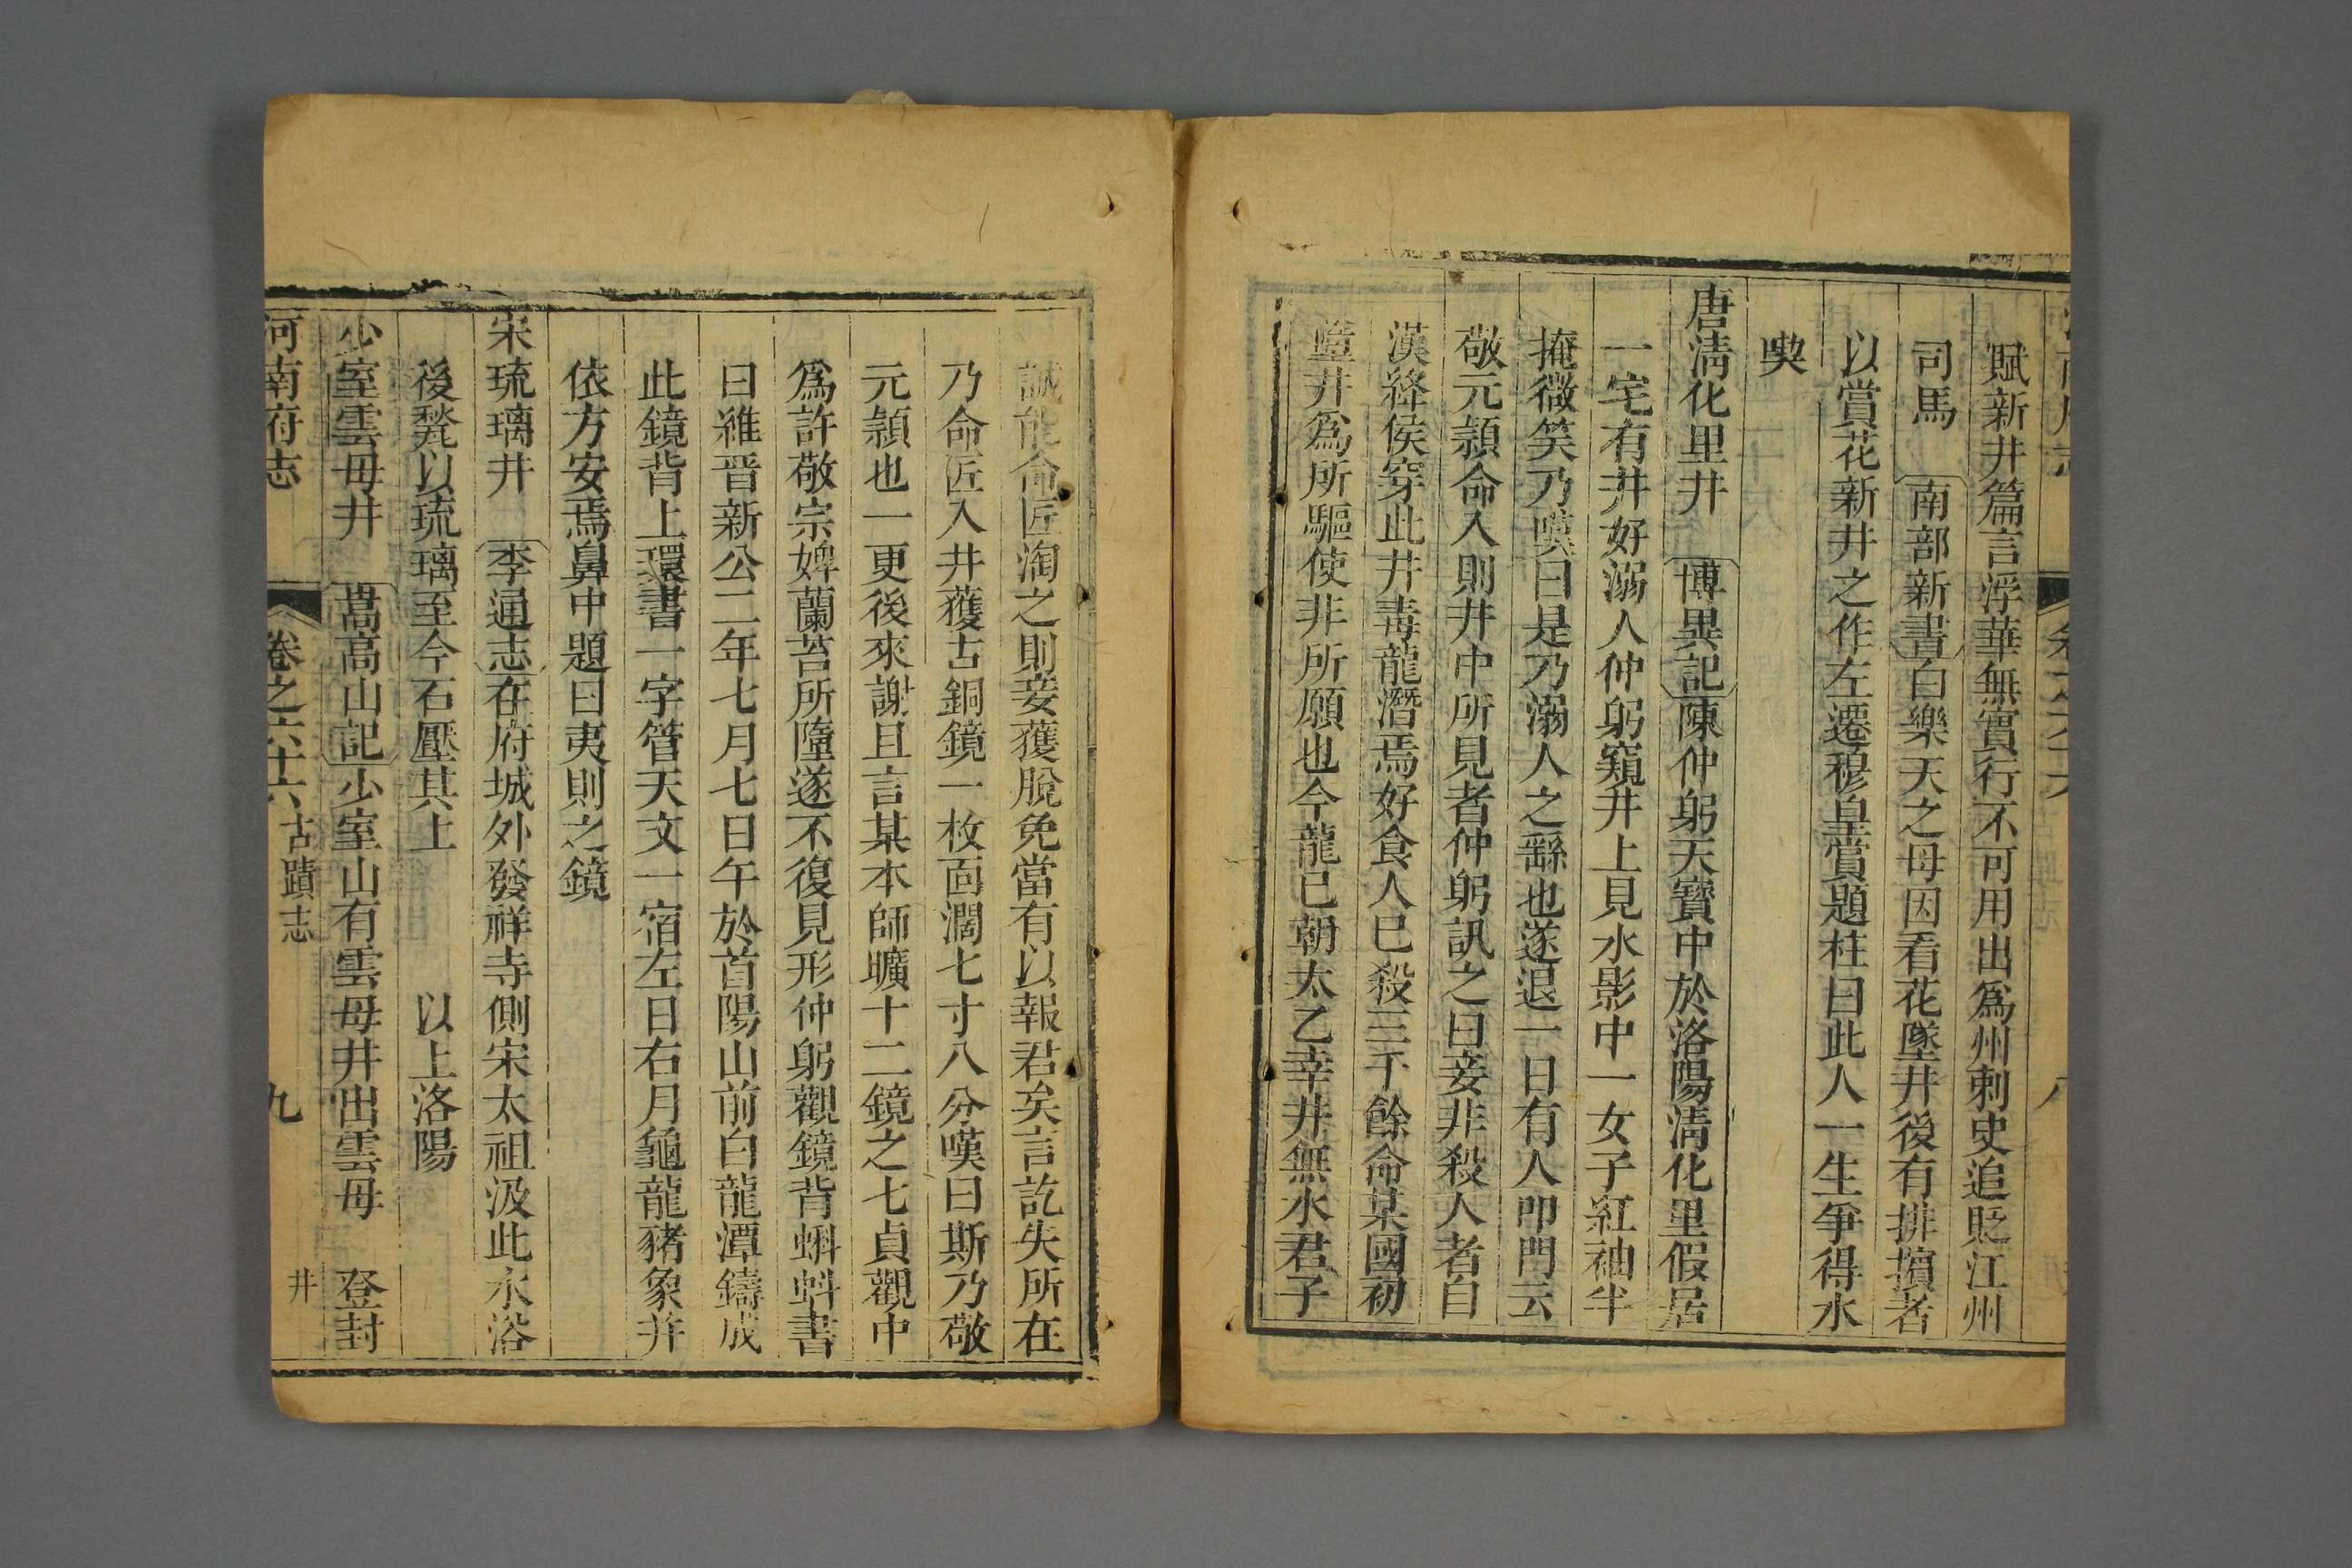 賦新井篇言浮華無實行不可用出爲州刺史追貶江州
司馬　南部新書白樂天之母因看花墜井後有排擯者
以賞花新井之作左遷穆皇嘗題柱曰此人一生爭得水
喫
唐淸化里井　博異記陳仲躬天寶中於洛陽淸化里假居
一宅有井好溺人仲躬窺井上見水影中一女子紅袖半
掩微笑乃嘆曰是乃溺人之繇也遂退一日有人叩門云
敬元頴命入則井中所見者仲躬訊之曰妾非殺人者自
漢絳侯穿此井毒龍潛焉好食人已殺三千餘命某國初
墮井爲所驅使非所願也今龍已朝太乙幸井無水君子
誠能命匠淘之則妾獲脫免當有以報君矣言訖失所在
乃命匠入井獲古銅鏡一枚面濶七寸八分嘆曰斯乃敬
元頴也一更後來謝且言某本師曠十二鏡之七貞觀中
爲許敬宗婢蘭苕所墮遂不復見形仲躬觀鏡背蝌蚪書
曰維晋新公二年七月七日午於首陽山前白龍潭鑄成
此鏡背上環書一字管天文一宿左日右月龜龍豬象并
依方安焉鼻中題曰夷則之鏡
宋琉璃井　李通志在府城外發祥寺側宋太祖汲此水浴
後甃以琉璃至今石壓其上　以上洛陽
少室雲母井　嵩高山記少室山有雲母井出雲母　登封
河南府志　卷之六十六　古蹟志　井　九